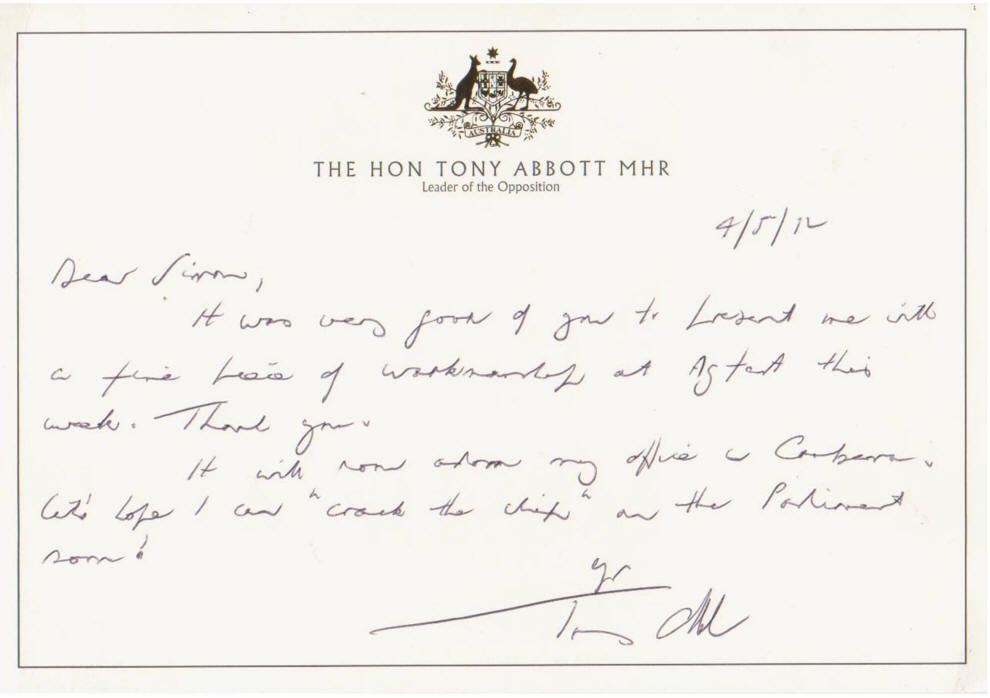 AUSTRALIA
THE HON TONY ABBOTT MHR
Leader of the Opposition
4/5/12
Dear Simon,
It was very good of you to present me with
a fine piece of workmanship at Agfest this
week. Thank you.
It will now adorn my office in Canberra.
Let's hope I can "crack the whip" on the Parliament
soon!
Yr
Tony Abbott